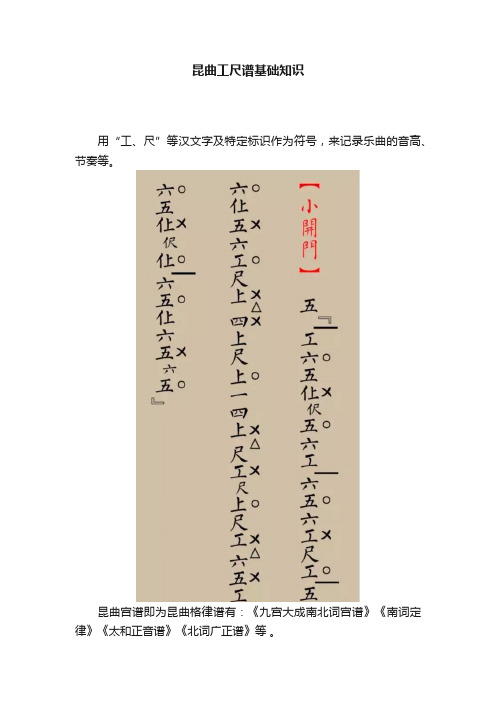 昆曲工尺谱基础知识
用“工、尺”等汉文字及特定标识作为符号，来记录乐曲的音高、
节奏等。
【小開門】五『工六○五仩×伬五○六工六五○六工×尺工○五
六○仩五×六工○尺上×△四×上尺上○一四上×△尺工×尺上○尺工×△六五×工
六○五仩×伬仩○六五○仩六五×六五○』
昆曲宫谱即为昆曲格律谱有：《九宫大成南北词宫谱》《南词定
律》《太和正音谱》《北词广正谱》等 。